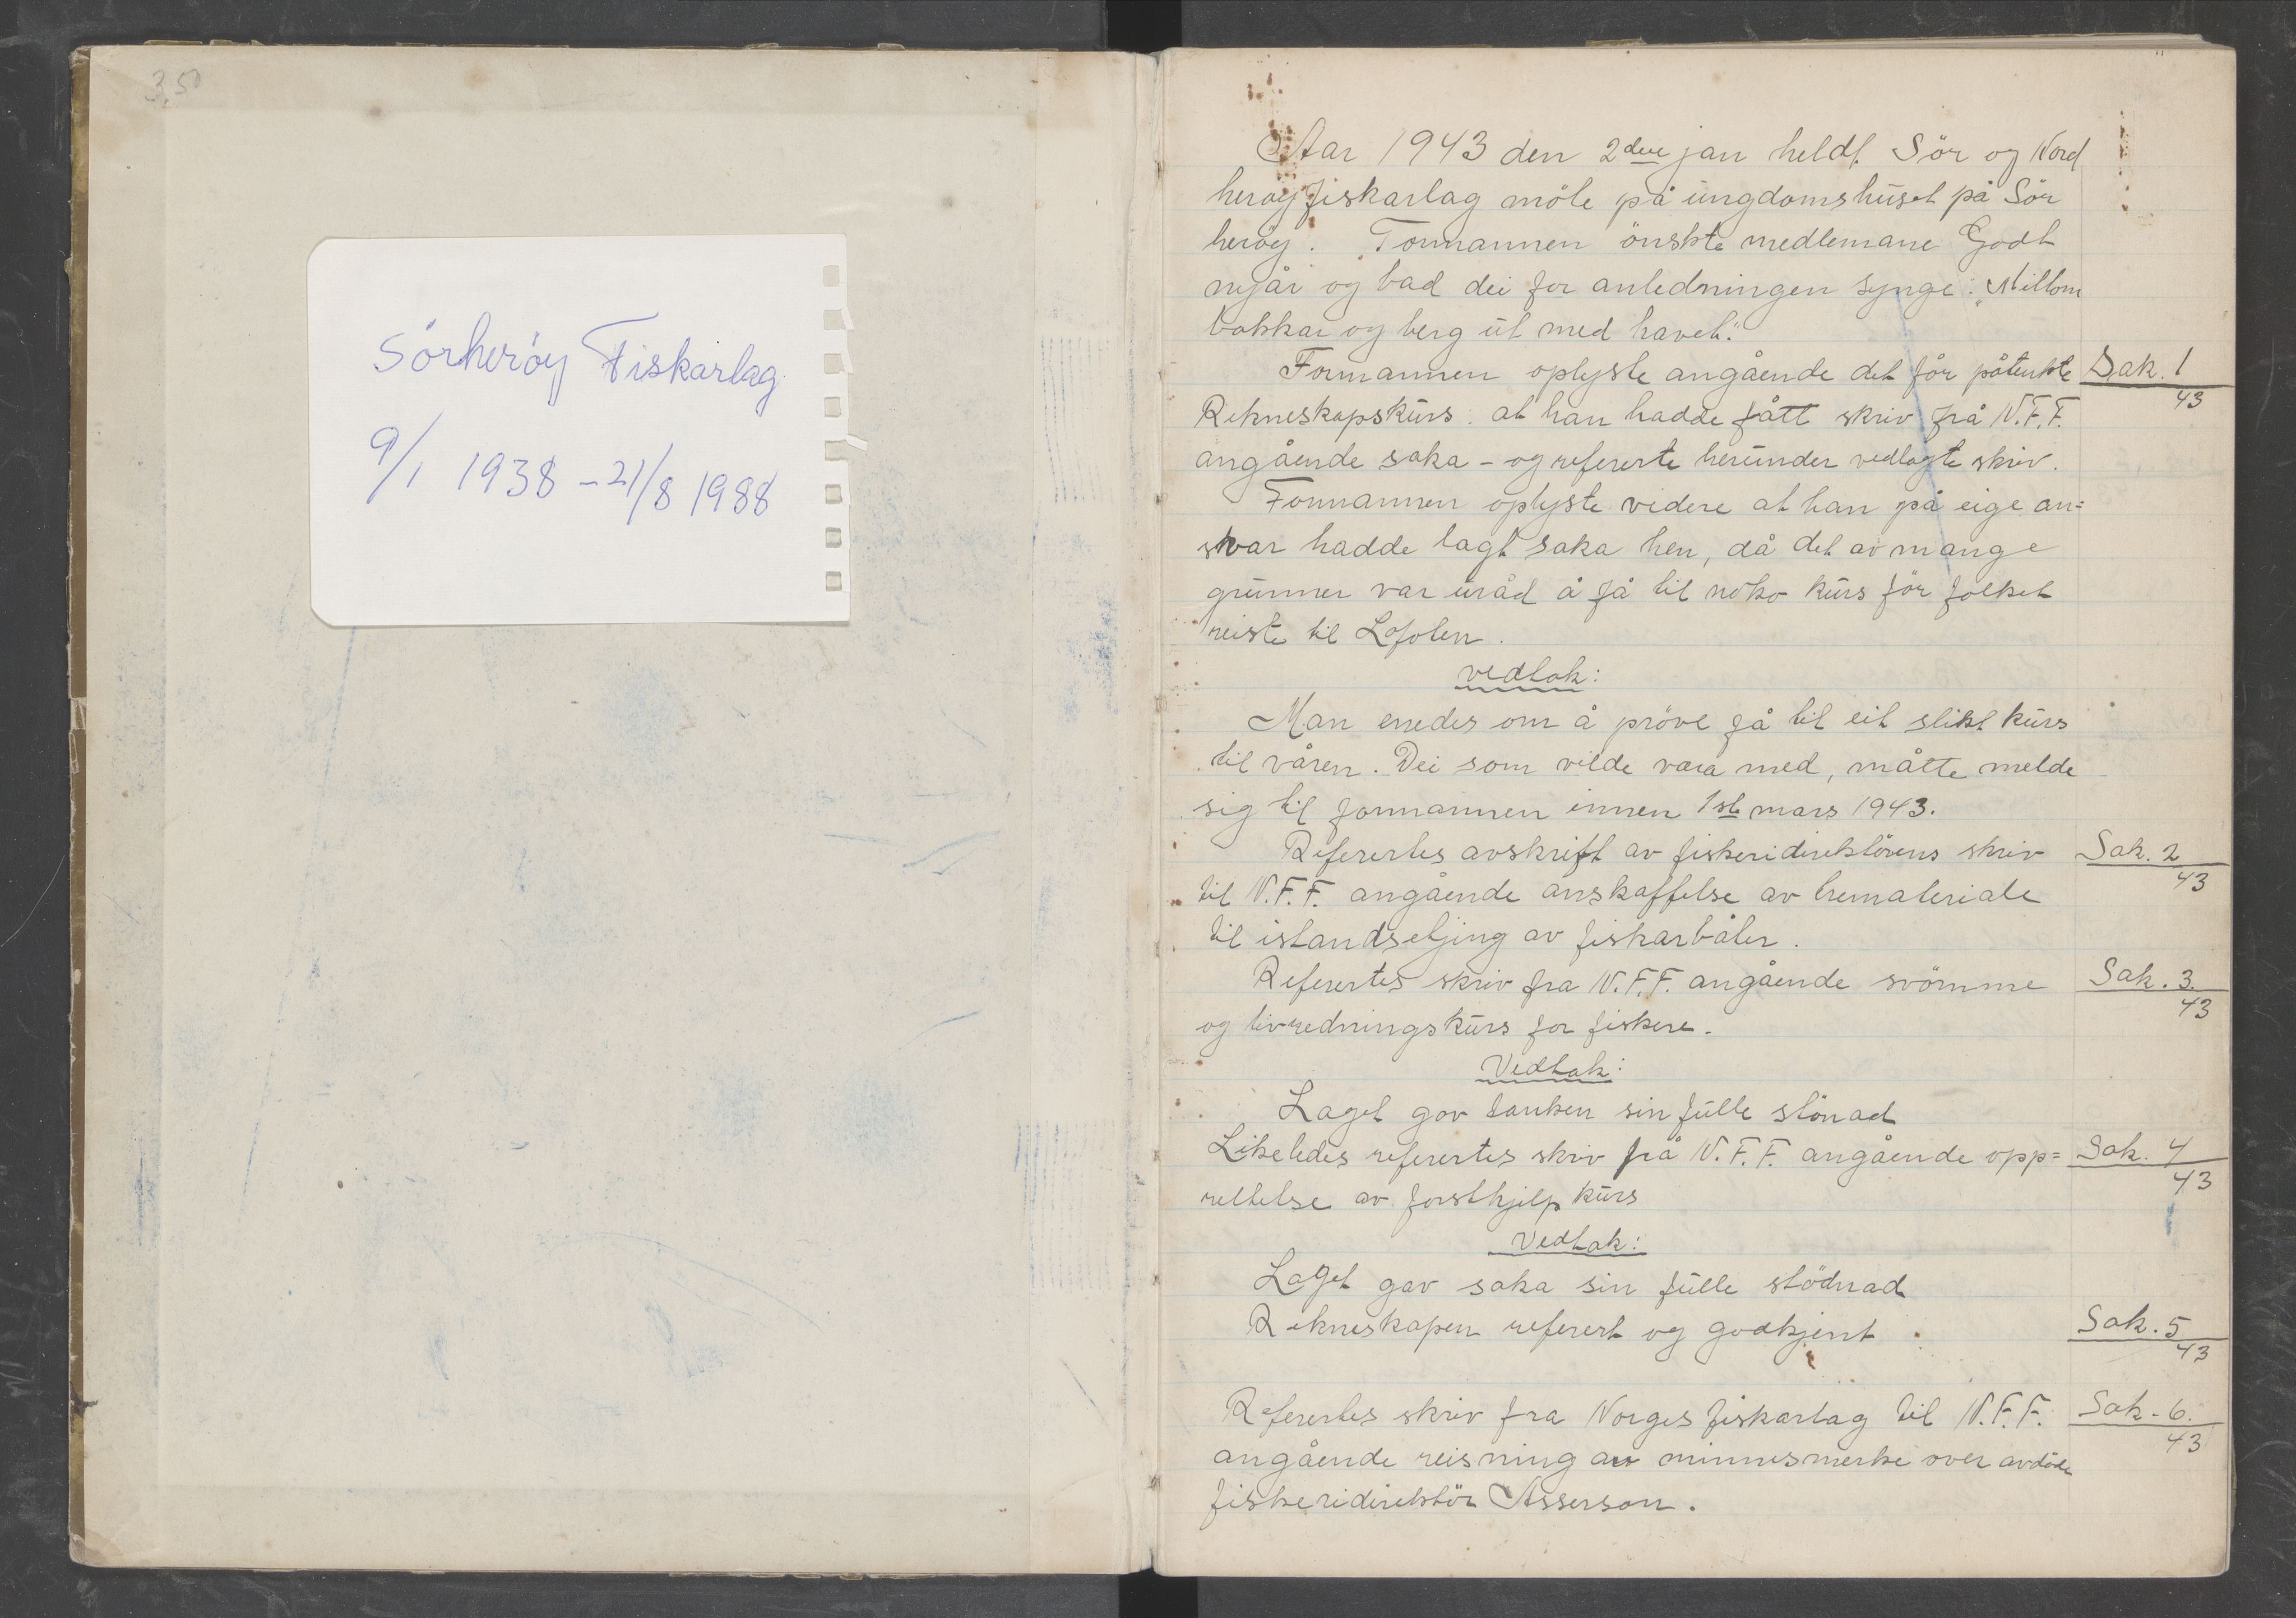 3,50
Sörheröy Fiskarlag
9/1 1938 - 21/8 1988
Aar 1943 den 2dre jan heldt Sör og Nord
heröy fiskarlag möte på ungdomshuset på Sör
heröy. Formannen önskte medlemane Godt
nyår og bad dei for anledningen synge: "Millom
bakkar og berg ut med havet."
Formannen oplyste angående det för påtenkte Sak. 1/43
Rekneskapskurs: at han hadde fått skriv frå N.F.F.
angående saka - og refererte herunder vedlagte skriv.
Formannen oplyste videre at han på eige an=
svar hadde lagt saka hen, då det av mange
grunner var uråd å få til noko kurs för folket
reiste til Lofoten.
vedtak:
Man enedes om å pröve få til eit slikt kurs
til våren. Dei som vilde vara med, måtte melde
sig til formannen innen 1st mars 1943.
Referertes avskrift av fiskeridirektörens skriv Sak. 2/43
til N.F.F. angående anskaffelse av tremateriale
til istandsetjing av fiskarbåter.
Referertes skriv fra N.F.F. angående svömme Sak. 3./43
og livredningskurs for fiskere.
Vedtak:
Laget gav tanken sin fulle stönad
Likeledes referertes skriv frå N.F.F. angående opp= Sak. 4/43
rettelse av forsthjelp kurs
Vedtak:
Laget gav saka sin fulle stödnad
Rekneskapen referert og godkjent. Sak. 5/43
Referertes skriv fra Norges fiskarlag til N.F.F. Sak. 6./43
angående reisning av minnesmerke over avdöde
fiskeridirektör Asserson.